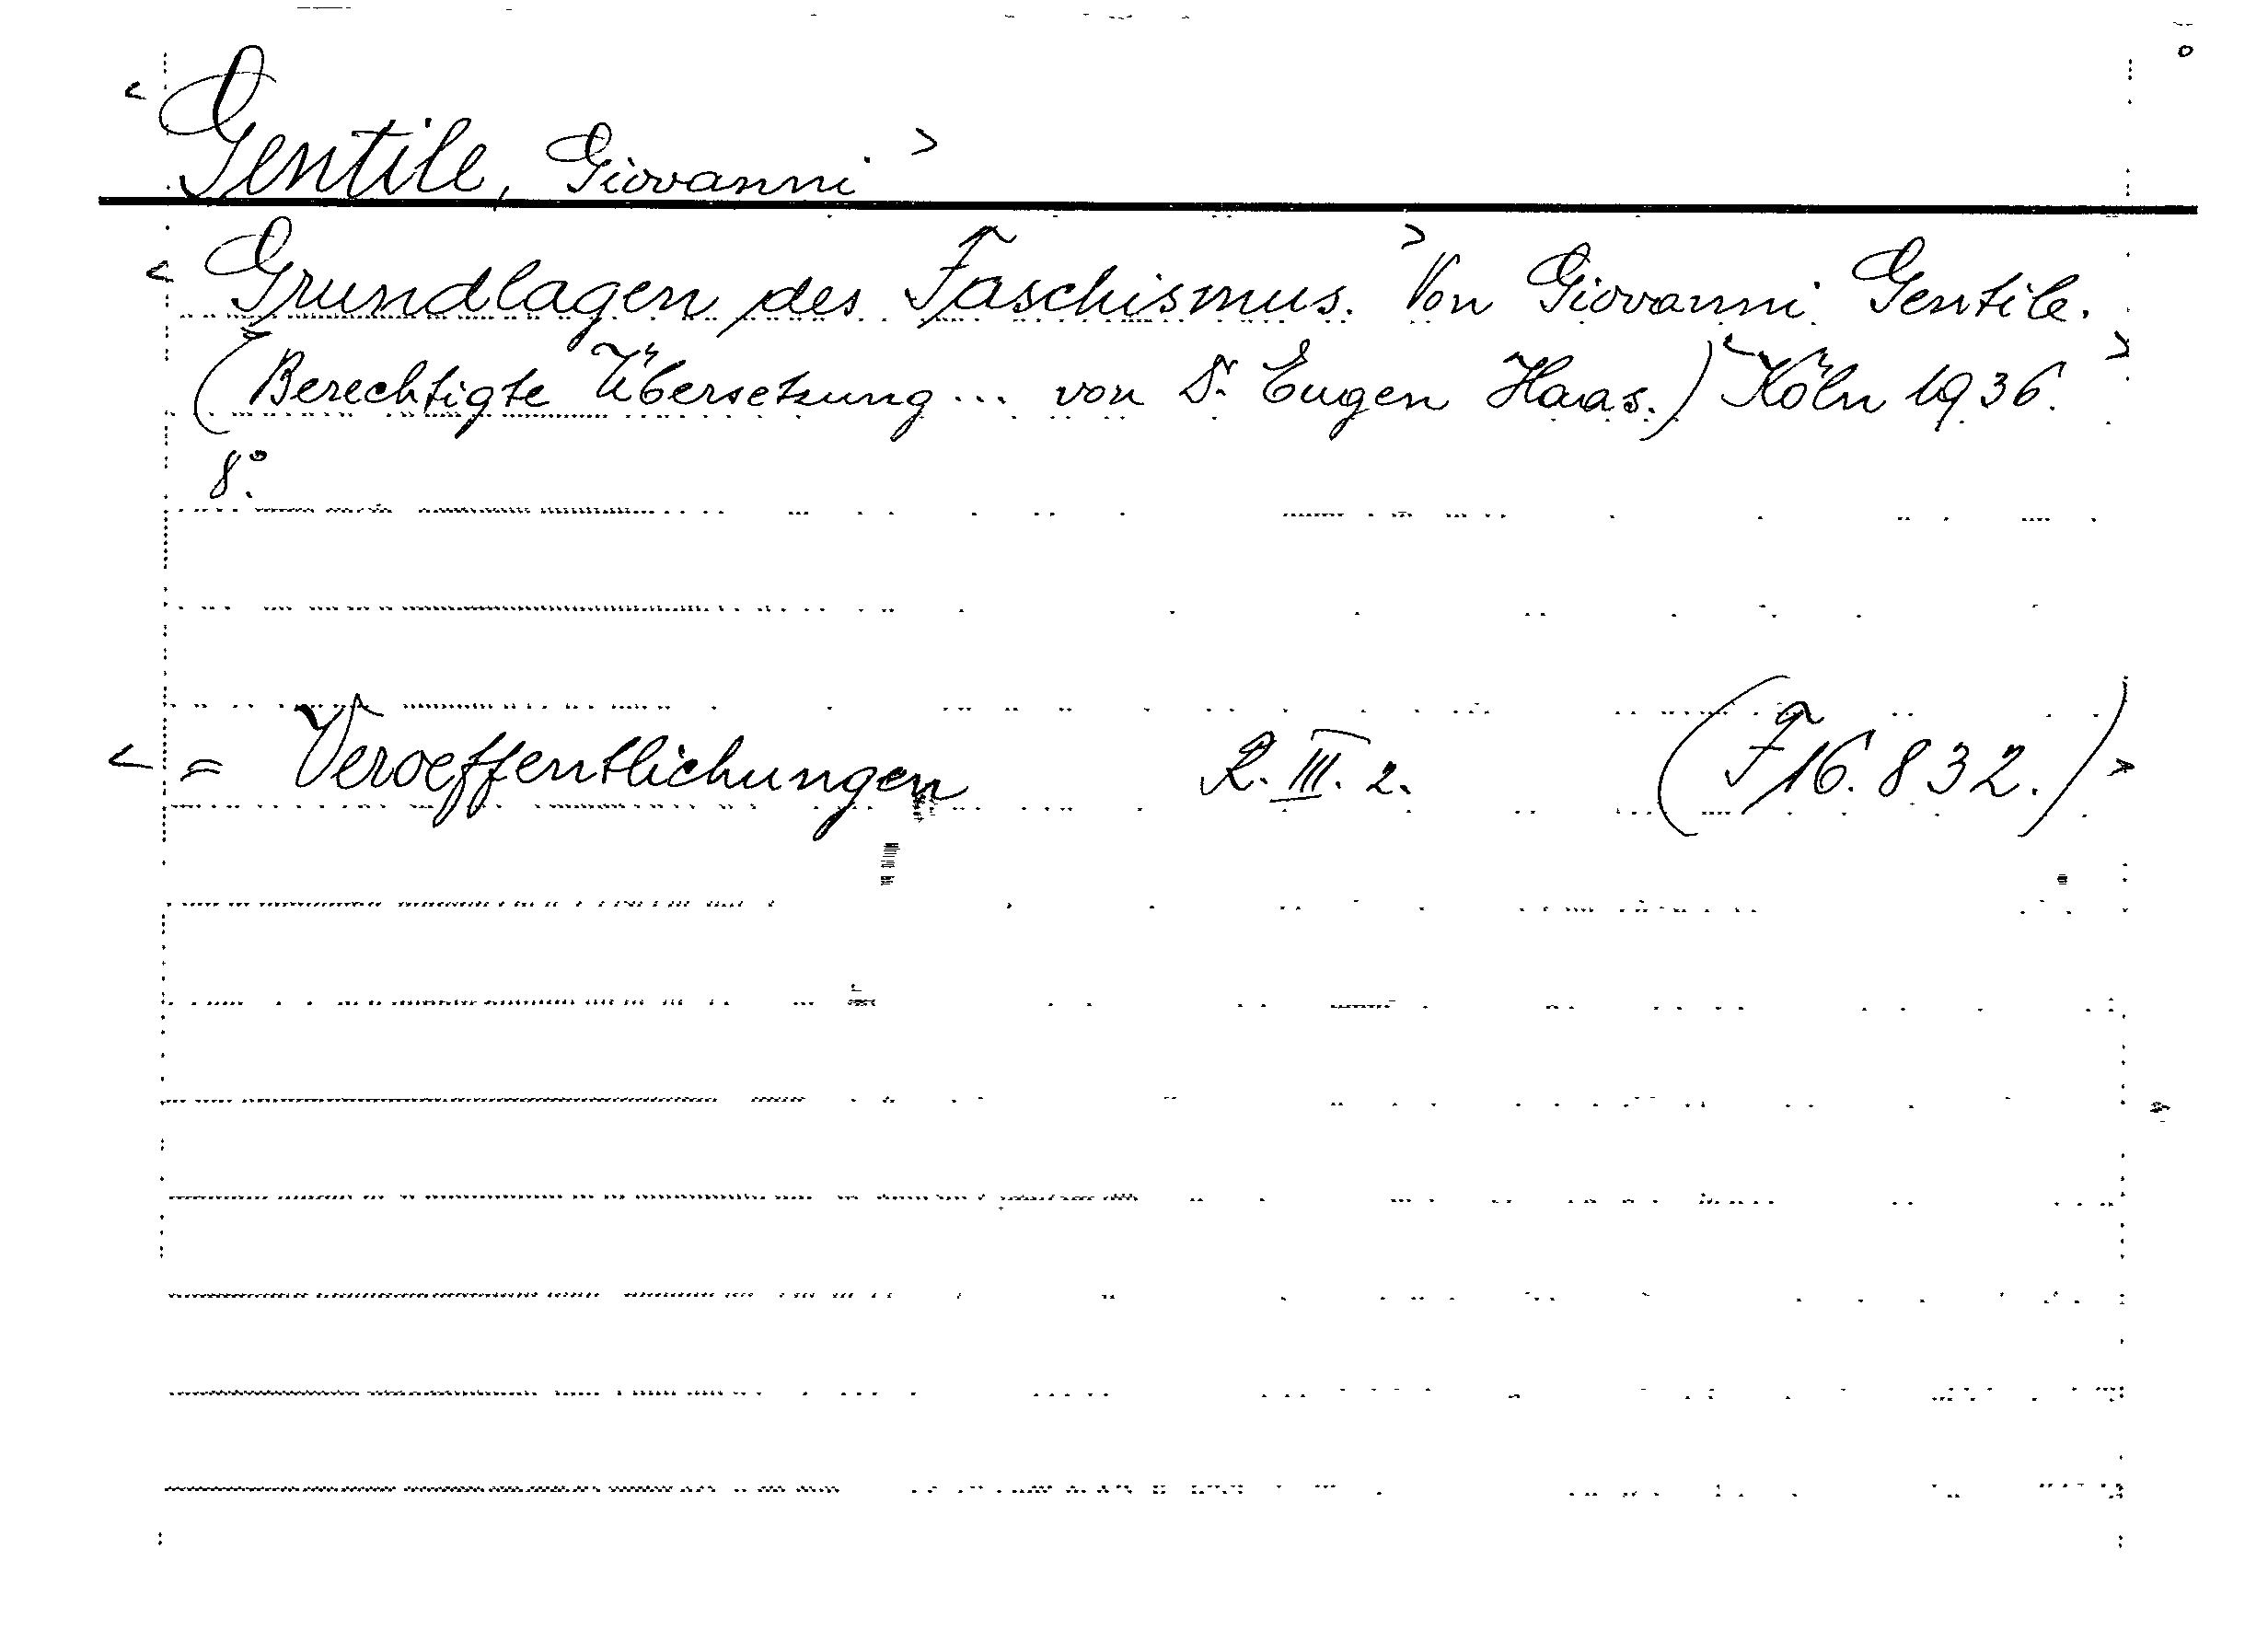 < Gentile, Giovanni >
< Grundlagen des Faschismus. > Von Giovanni Gentile.
(Berechtigte Übersetzung ... von Dr. Eugen Haas.) < Köln 1936. >
8°.
< = Veroeffentlichungen R. III. 2. (F 16.832.) >